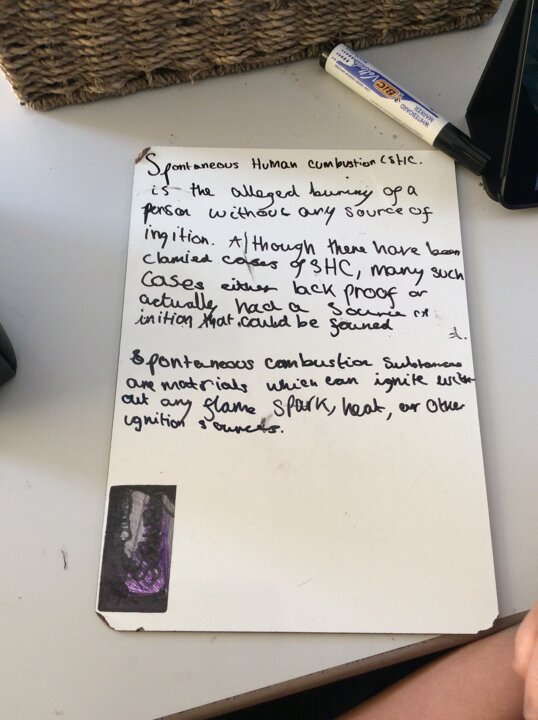 WHITEBOARD MARKER
BIC Velleda
Spontaneous Human cumbustion (SHC.
is the alleged burning of a
person without any source of
ingition. Although there have been
clamied cases of SHC, many such
cases either lack proof or
actually had a source of
inition that could be founed
Spontaneous combustion Substances
are materials which can ignite with
out any flame spark, heat, or other
ignition sources.